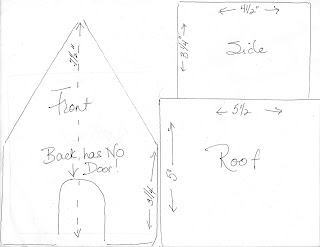 Front
Back has No
Door!
3 1/4
4 1/2"
3 1/4"
Side
5 1/2
5"
Roof